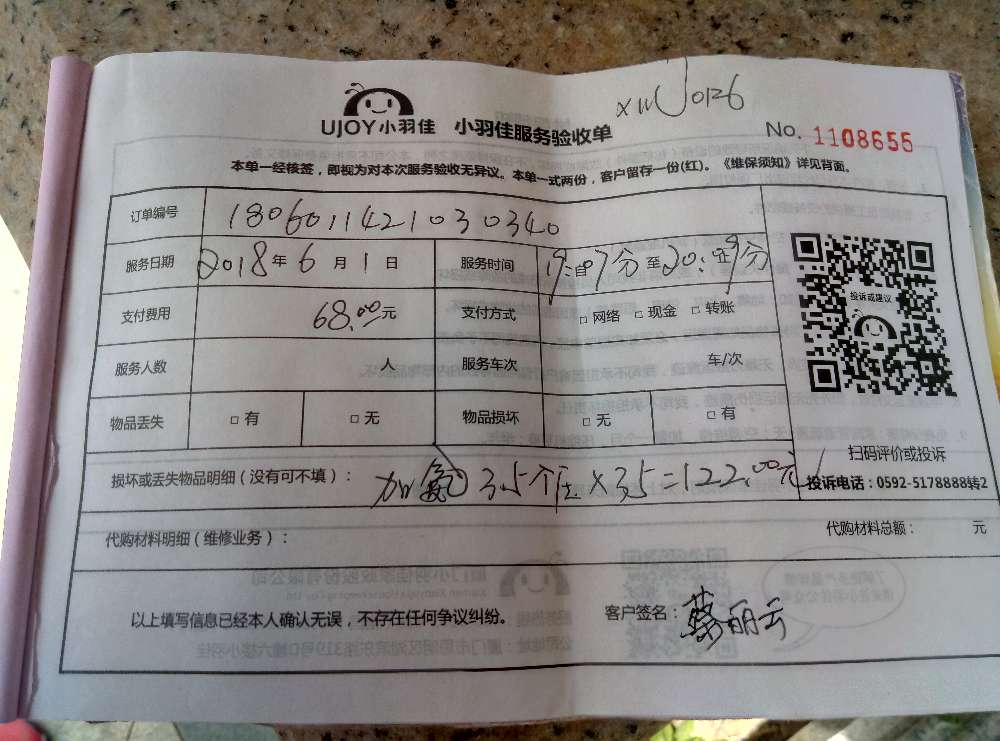 xwJ0126
UJOY小羽佳 小羽佳服务验收单
No. 1108656
本单一经核签，即视为对本次服务验收无异议。本单一式两份，客户留存一份(红)。《维保须知》详见背面。
订单编号 1806011421030340
服务日期 2018年6月1日 服务时间 分至 分
支付费用 68.00元 支付方式 □网络 □现金 □转账
服务人数 人 服务车次 车/次
物品丢失 □有 □无 物品损坏 □无 □有
投诉或建议
扫码评价或投诉
投诉电话：0592-5178888转2
损坏或丢失物品明细（没有可不填）： 加氟 3.5个压×35=122.00元
代购材料明细（维修业务）： 代购材料总额： 元
以上填写信息已经本人确认无误，不存在任何争议纠纷。 客户签名：蔡丽云